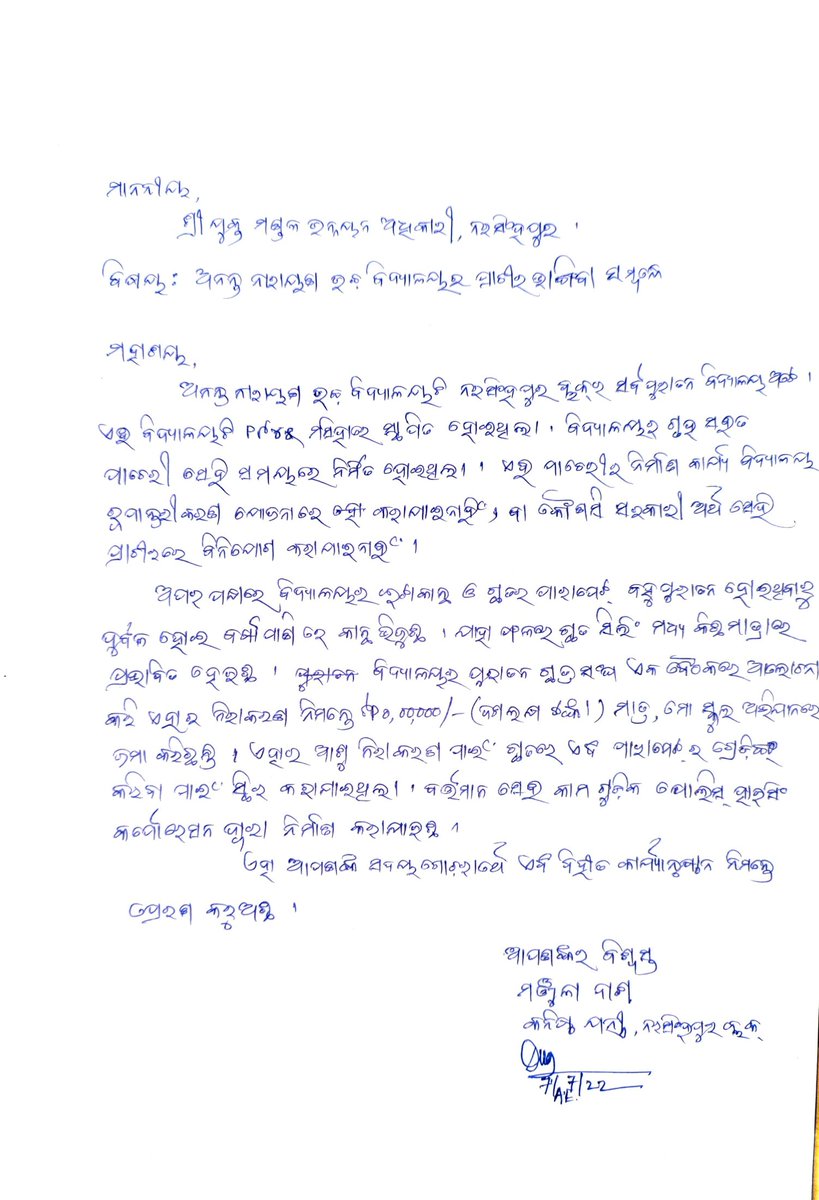 ମାନନୀୟ,
ଶ୍ରୀଯୁକ୍ତ ମଣ୍ଡଳ ଉନ୍ନୟନ ଅଧିକାରୀ, ନରସିଂହପୁର ।
ବିଷୟ: ଅନନ୍ତ ନାରାୟଣ ଉଚ୍ଚ ବିଦ୍ୟାଳୟର ପ୍ରାଚୀର ଭାଙ୍ଗିବା ସମ୍ପର୍କେ
ମହାଶୟ,
ଅନନ୍ତ ନାରାୟଣ ଉଚ୍ଚ ବିଦ୍ୟାଳୟଟି ନରସିଂହପୁର ବ୍ଲକର ସର୍ବପୁରାତନ ବିଦ୍ୟାଳୟ ଅଟେ ।
ଏହି ବିଦ୍ୟାଳୟଟି ମସିହାରେ ସ୍ଥାପିତ ହୋଇଥିଲା । ବିଦ୍ୟାଳୟର ଗୃହ ସହିତ
ପାଚେରୀ ସେହି ସମୟରେ ନିର୍ମିତ ହୋଇଥିଲା । ଏହି ପାଚେରୀର ନିର୍ମାଣ କାର୍ଯ୍ୟ ବିଦ୍ୟାଳୟ
ରୂପାନ୍ତରୀକରଣ ଯୋଜନାରେ କରାଯାଇନାହିଁ, ବା କୌଣସି ସରକାରୀ ଅର୍ଥ ସେହି
ପ୍ରାଚୀରରେ ବିନିଯୋଗ କରାଯାଇନାହିଁ ।
ଅପର ପକ୍ଷରେ ବିଦ୍ୟାଳୟର ଓ ଛାତର ପାରାପେଟ୍ ବହୁ ପୁରାତନ ହୋଇଥିବାରୁ
ଦୁର୍ବଳ ହୋଇ ବର୍ଷାପାଣି ରେ କାନ୍ଥ ଭିଜୁଛି । ଯାହା ଫଳରେ ଛାତ ସିଲିଂ ମଧ୍ୟ କିଛି ମାତ୍ରାରେ
ପ୍ରଭାବିତ ହେଉଛି । ବିଦ୍ୟାଳୟର ପୁରାତନ ଛାତ୍ର ସଂଘ ଏକ ବୈଠକରେ ଆଲୋଚନା
କରି ଏହାର ନିରାକରଣ ନିମନ୍ତେ ୧୦,୦୦,୦୦୦/- (ଦଶଲକ୍ଷ ଟଙ୍କା) ମାତ୍ର, ମୋ ସ୍କୁଲ ଅଭିଯାନରେ
ଜମା କରିଛନ୍ତି । ଏହାର ଆଶୁ ନିରାକରଣ ପାଇଁ ଛାତରେ ଏବଂ ପାରାପେଟ୍ ର ଗ୍ରେଡ଼ିଙ୍ଗ୍
କରିବା ପାଇଁ ସ୍ଥିର କରାଯାଇଥିଲା । ବର୍ତ୍ତମାନ ସେହି କାମ ଗୁଡ଼ିକ ପୋଲିସ୍ ହାଉସିଂ
କର୍ପୋରେସନ ଦ୍ୱାରା ନିର୍ମାଣ କରାଯାଉଛି ।
ଏହା ଆପଣଙ୍କ ସଦୟ ଗୋଚରାର୍ଥେ ଏବଂ ବିହିତ କାର୍ଯ୍ୟାନୁଷ୍ଠାନ ନିମନ୍ତେ
ପ୍ରେରଣ କରୁଅଛି ।
ଆପଣଙ୍କର ବିଶ୍ୱସ୍ତ
ମଞ୍ଜୁଳା ଦାଶ
କନିଷ୍ଠ ଯନ୍ତ୍ରୀ, ନରସିଂହପୁର ବ୍ଲକ୍
7/7/22
A.E.